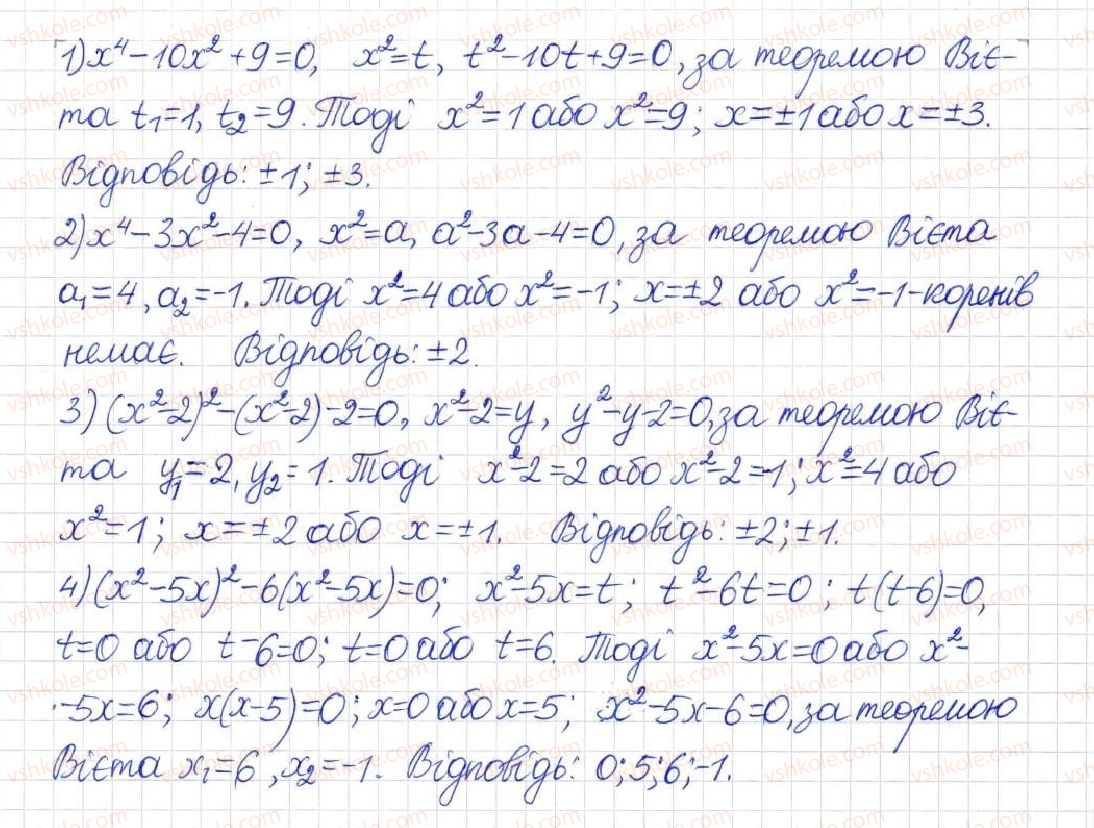 1) x⁴-10x²+9=0, x²=t, t²-10t+9=0, за теоремою Віє-
та t₁=1, t₂=9. Тоді x²=1 або x²=9; x=±1 або x=±3.
Відповідь: ±1; ±3.
2) x⁴-3x²-4=0, x²=a, a²-3a-4=0, за теоремою Вієта
a₁=4, a₂=-1. Тоді x²=4 або x²=-1; x=±2 або x²=-1-коренів
немає. Відповідь: ±2.
3) (x²-2)²-(x²-2)-2=0, x²-2=y, y²-y-2=0, за теоремою Віє-
та y₁=2, y₂=1. Тоді x²-2=2 або x²-2=-1; x²=4 або
x²=1; x=±2 або x=±1. Відповідь: ±2; ±1.
4) (x²-5x)²-6(x²-5x)=0; x²-5x=t; t²-6t=0; t(t-6)=0,
t=0 або t-6=0; t=0 або t=6. Тоді x²-5x=0 або x²-
-5x=6; x(x-5)=0; x=0 або x=5; x²-5x-6=0, за теоремою
Вієта x₁=6, x₂=-1. Відповідь: 0; 5; 6; -1.
vshkole.com